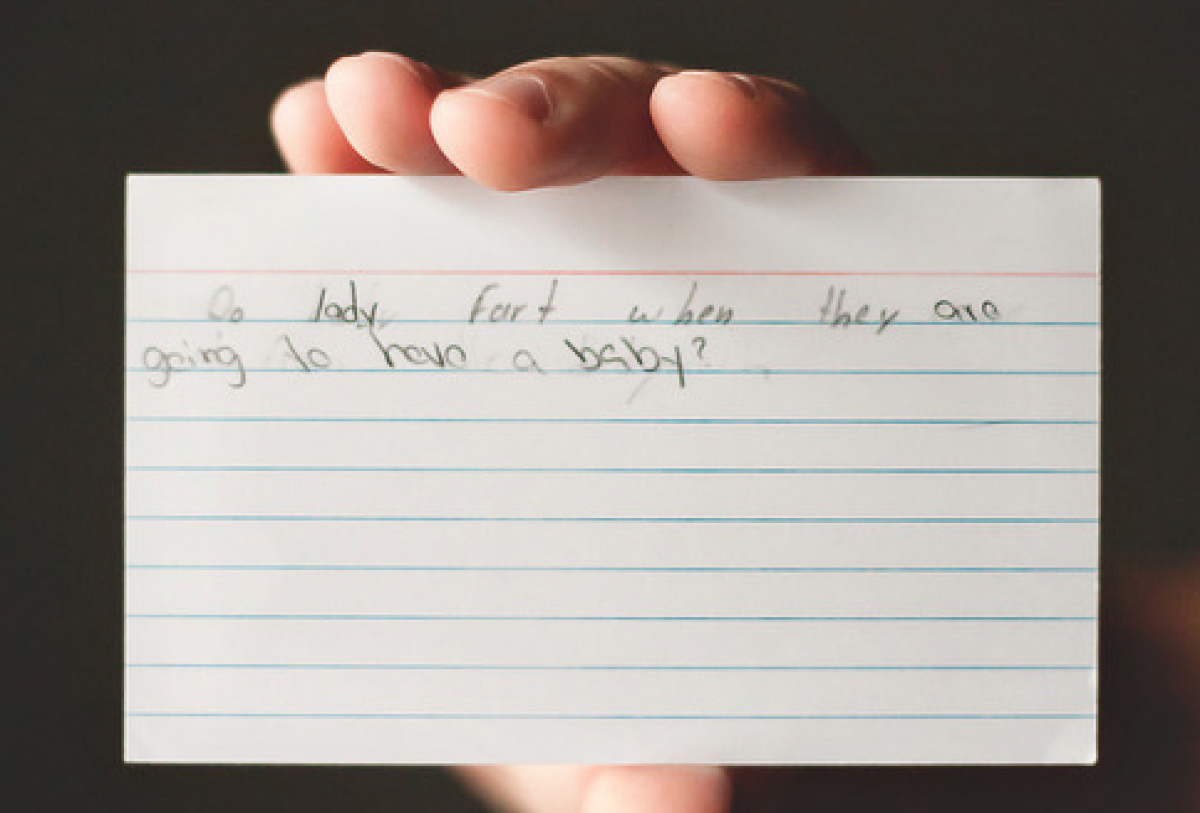 Do lady fart when they are
going to have a baby?